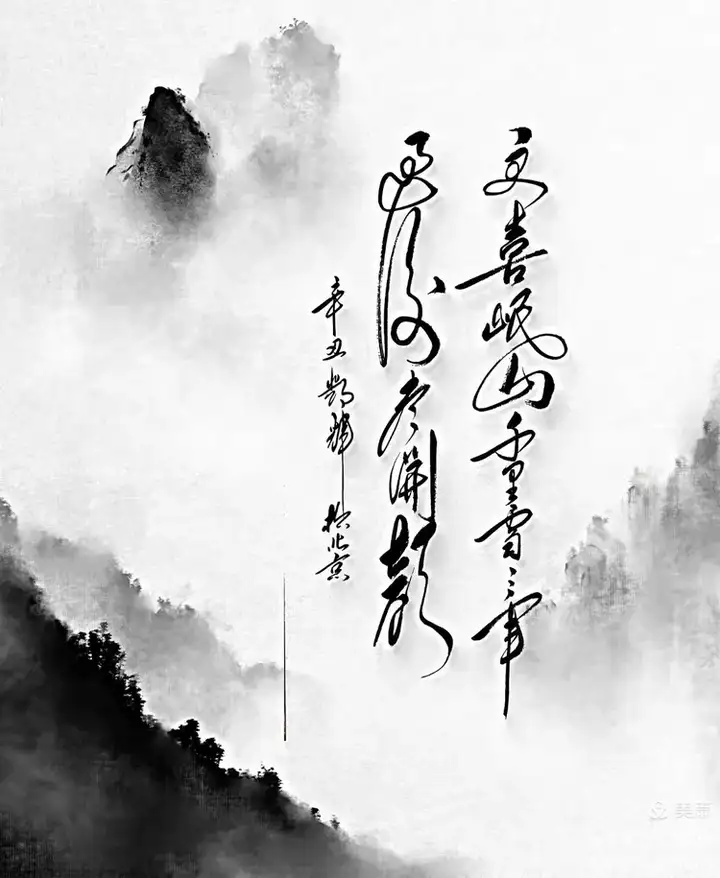 更喜岷山千里雪三军
过后尽开颜
辛丑 鹤辉 于北京